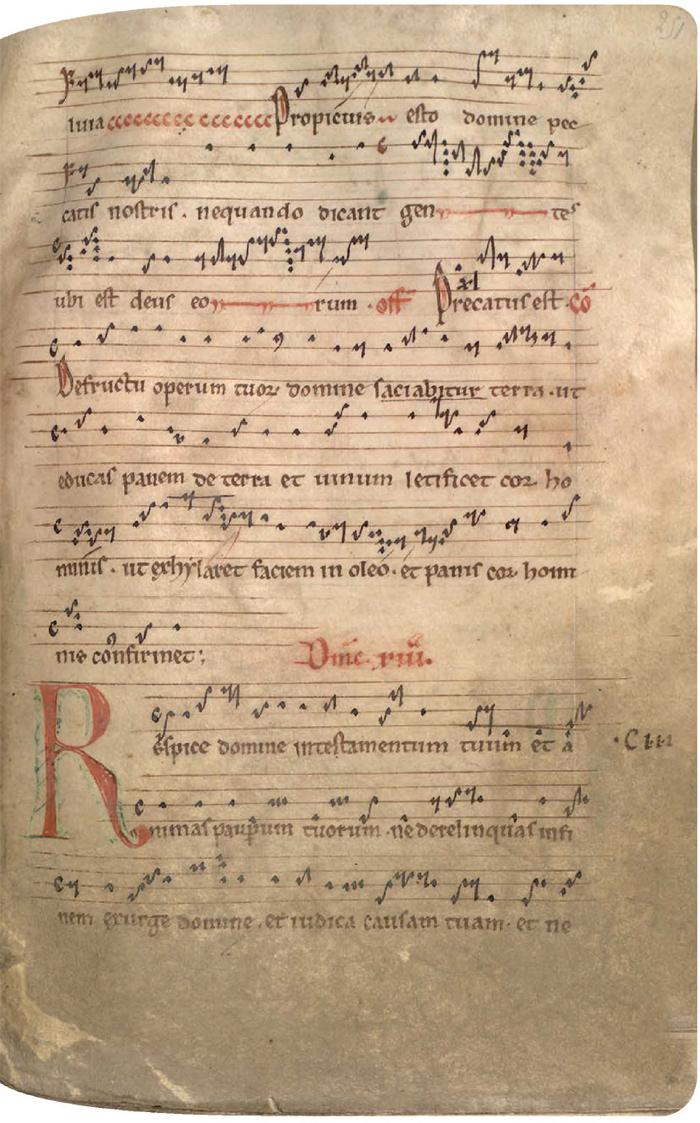 251
luia Propicius esto domine pec
catis nostris . nequando dicant gen tes
ubi est deus eo rum . off Precatus est . cō
Defructu operum tuoꝝ domine saciabitur terra . ut
educas panem de terra et uinum letificet cor ho
minis . ut exhylaret faciem in oleo . et panis cor homi
nis confirmet ;
Dnīc . xiii .
Respice domine intestamentum tuum et a
. C iii
nimas paupum tuorum . ne derelinquas infi
nem exurge domine . et iudica causam tuam . et ne